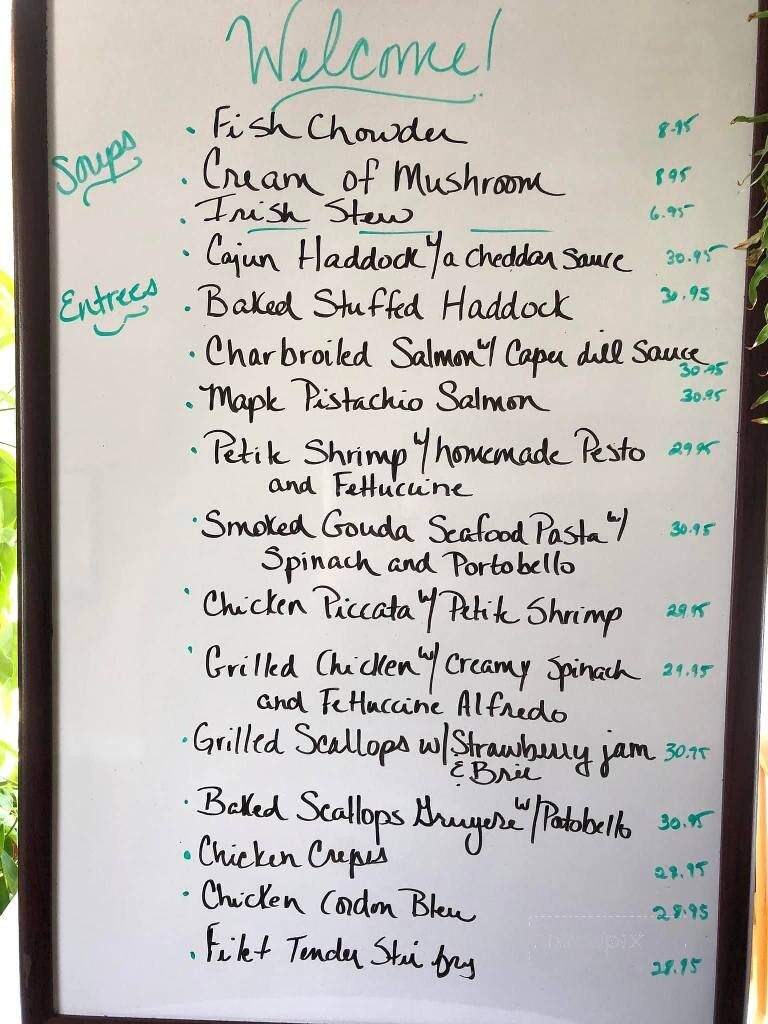 Welcome!
Soups
• Fish Chowder 8.95
• Cream of Mushroom 8.95
• Irish Stew 6.95
Entrees
• Cajun Haddock w/a cheddar sauce 30.95
• Baked Stuffed Haddock 30.95
• Charbroiled Salmon w/ Caper dill sauce
30.95
• Maple Pistachio Salmon 30.95
• Petite Shrimp w/ homemade Pesto 29.95
and Fettuccine
• Smoked Gouda Seafood Pasta w/ 30.95
Spinach and Portobello
• Chicken Piccata w/ Petite Shrimp 29.95
• Grilled Chicken w/ creamy spinach 29.95
and Fettuccine Alfredo
• Grilled Scallops w/ Strawberry jam 30.95
& Brie
• Baked Scallops Gruyere w/ Portobello 30.95
• Chicken Crepes 28.95
• Chicken Cordon Bleu 28.95
• Filet Tender Stir fry 28.95